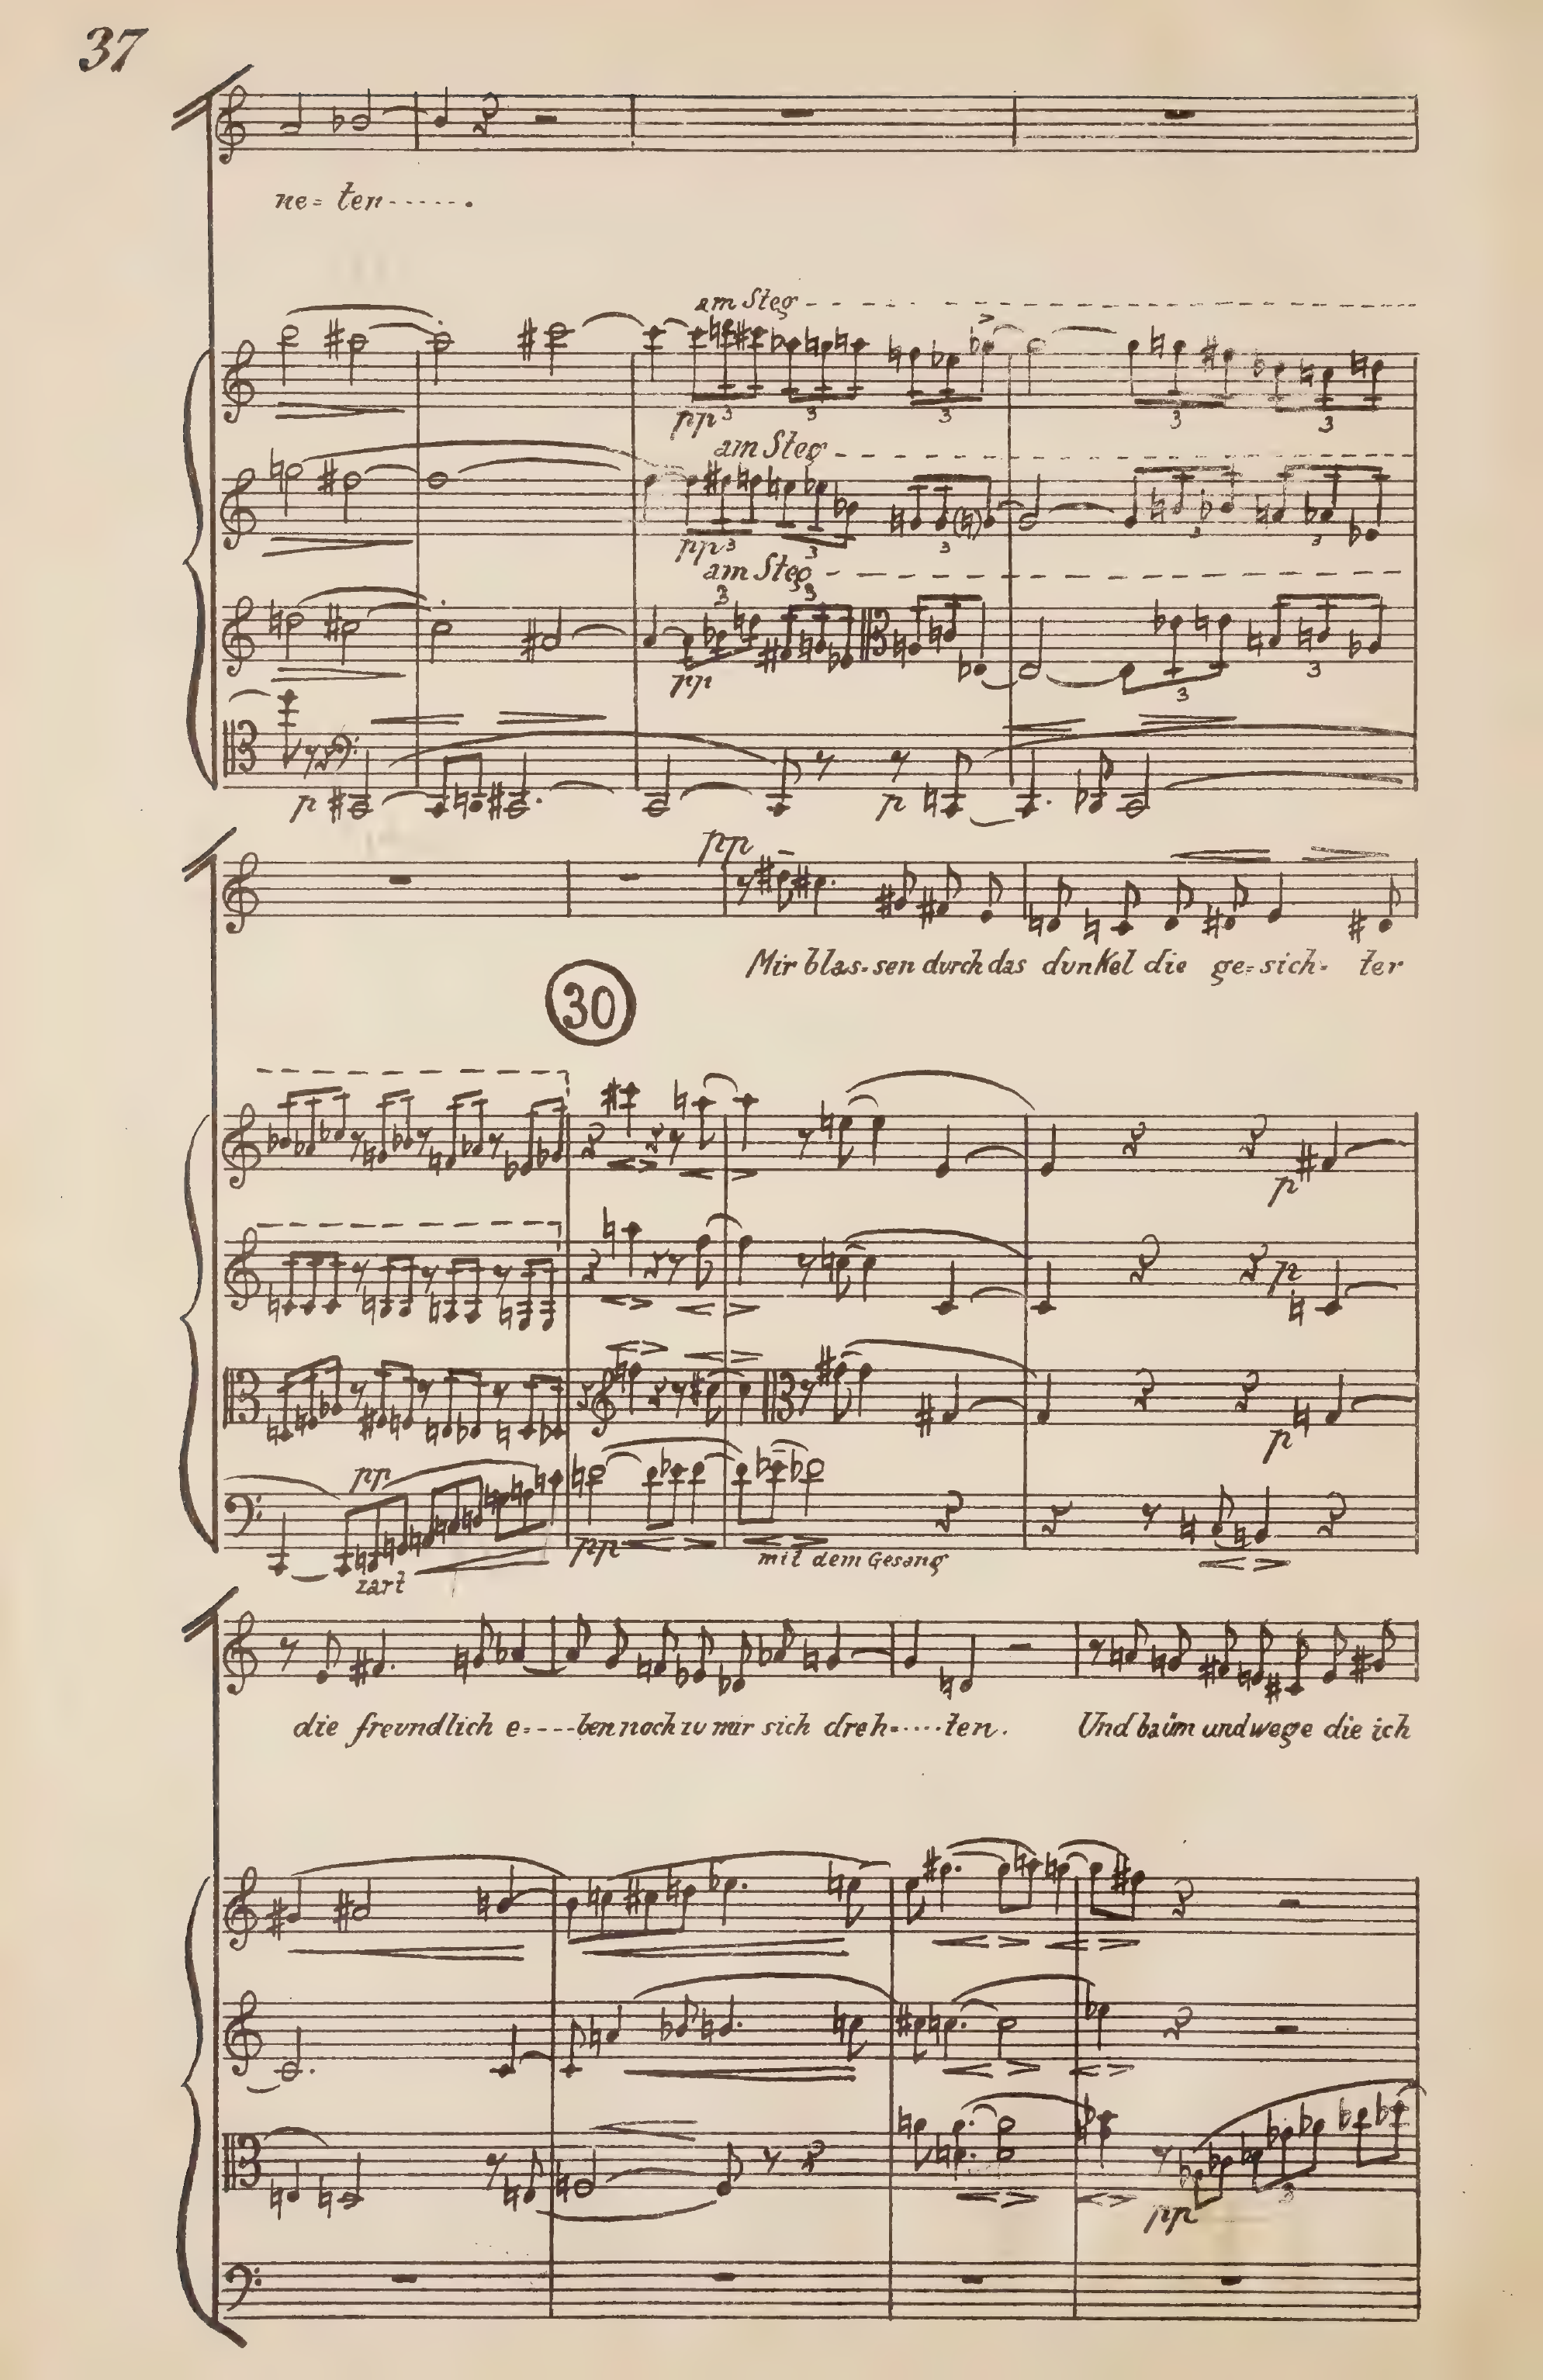 37
ne= ten-----.
am Steg
pp 3 3 3 3 3
am Steg
pp 3 3 3 3 3
am Steg
3 3
pp 3 3
p p
pp
Mir blas=sen durch das dunkel die ge=sich= ter
30
p
p
p
pp
zart
pp
mit dem Gesang
die freundlich e=---ben noch zu mir sich dreh=....ten. Und baüm und wege die ich
pp 3